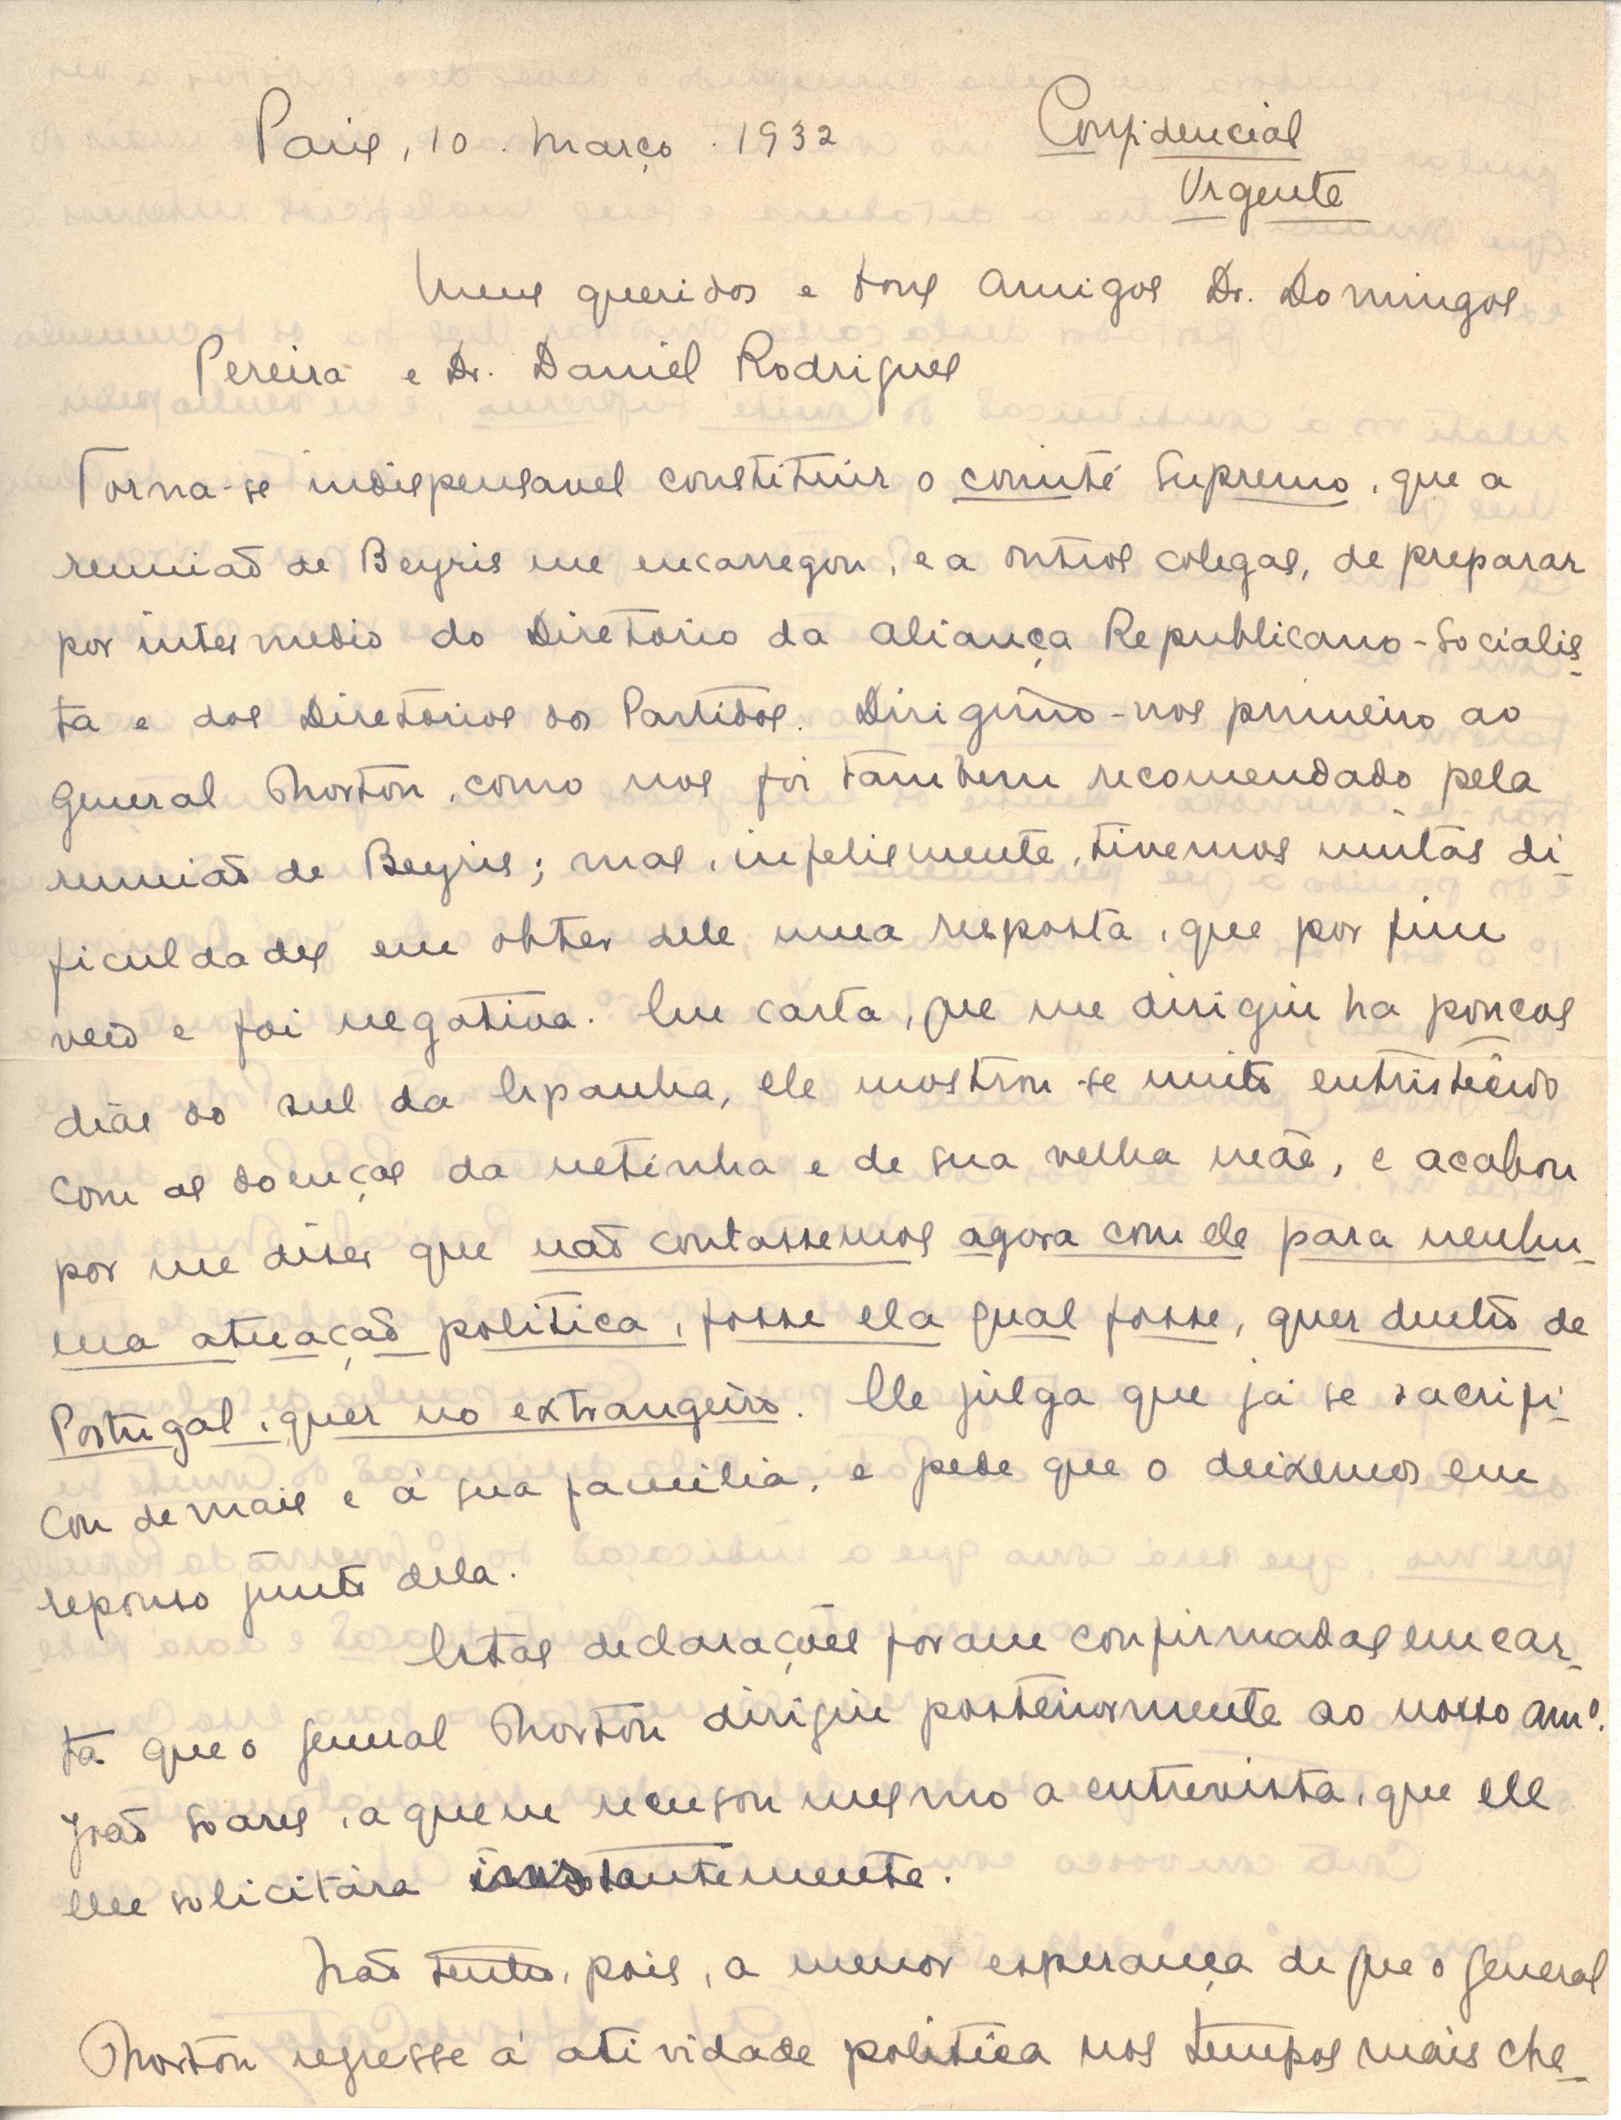 Paris, 10. Março. 1932
Confidencial
Urgente
Meus queridos e bons amigos Dr. Domingos
Pereira e Dr. Daniel Rodrigues
Torna-se indispensavel constituir o comité Supremo, que a
reunião de Beyris me encarregou, e a outros colegas, de preparar
por intermedio do Diretorio da Aliança Republicano-Socialis-
ta e dos Diretorios dos Partidos. Dirigimo-nos primeiro ao
General Norton, como nos foi tambem recomendado pela
reunião de Beyris; mas, infelismente, tivemos muitas di-
ficuldades em obter dele uma resposta, que por fim
veio e foi negativa. Em carta, que me dirigiu ha poucos
dias do sul da Espanha, ele mostrou-se muito entristecido
com as doenças da netinha e de sua velha mãe, e acabou
por me diser que não contassemos agora com ele para nenhu-
ma atuação politica, fosse ela qual fosse, quer dentro de
Portugal, quer no extrangeiro. Ele julga que já se sacrifi-
cou demais e á sua familia, e pede que o deixemos em
repouso junto dela.
Estas declarações foram confirmadas em car-
ta que o general Norton dirigiu posteriormente ao nosso amº.
João Soares, a quem recusou mesmo a entrevista, que ele
lhe solicitára instantemente.
Não tenho, pois, a menor esperança de que o General
Norton regresse á atividade politica nos tempos mais che-